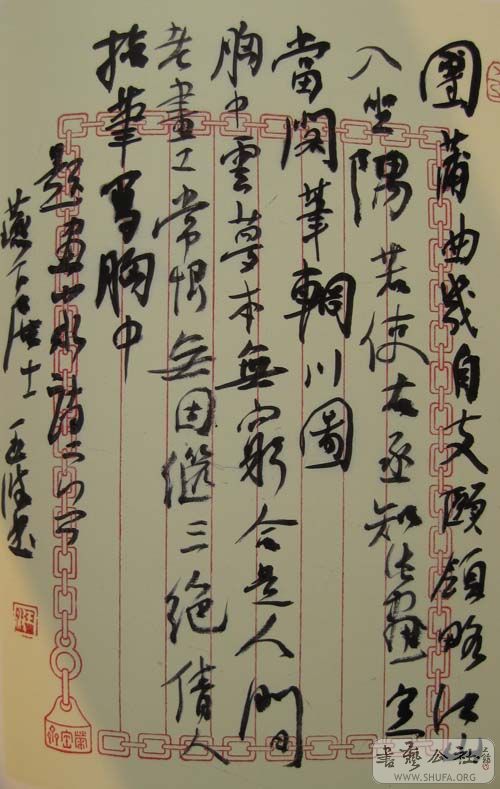 團蒲曲幾自支頤領略江山
入坐隅若使右丞知此畫定
當閣筆輞川圖
胸中雲夢本無窮合是人間
老畫工常恨無因繼三絶倩人
拈筆寫胸中
題畫山水詩二
居士王書
書藝公社
WWW.SHUFA.ORG